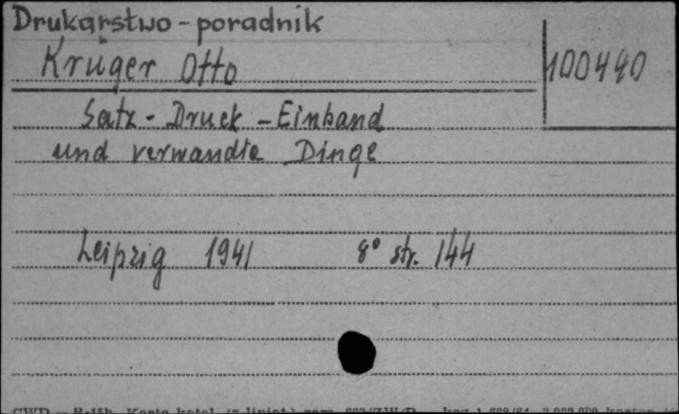 Drukarstwo - poradnik
Krüger Otto
100440
Satz - Druck - Einband
und verwandte Dinge
Leipzig 1941 8° str. 144